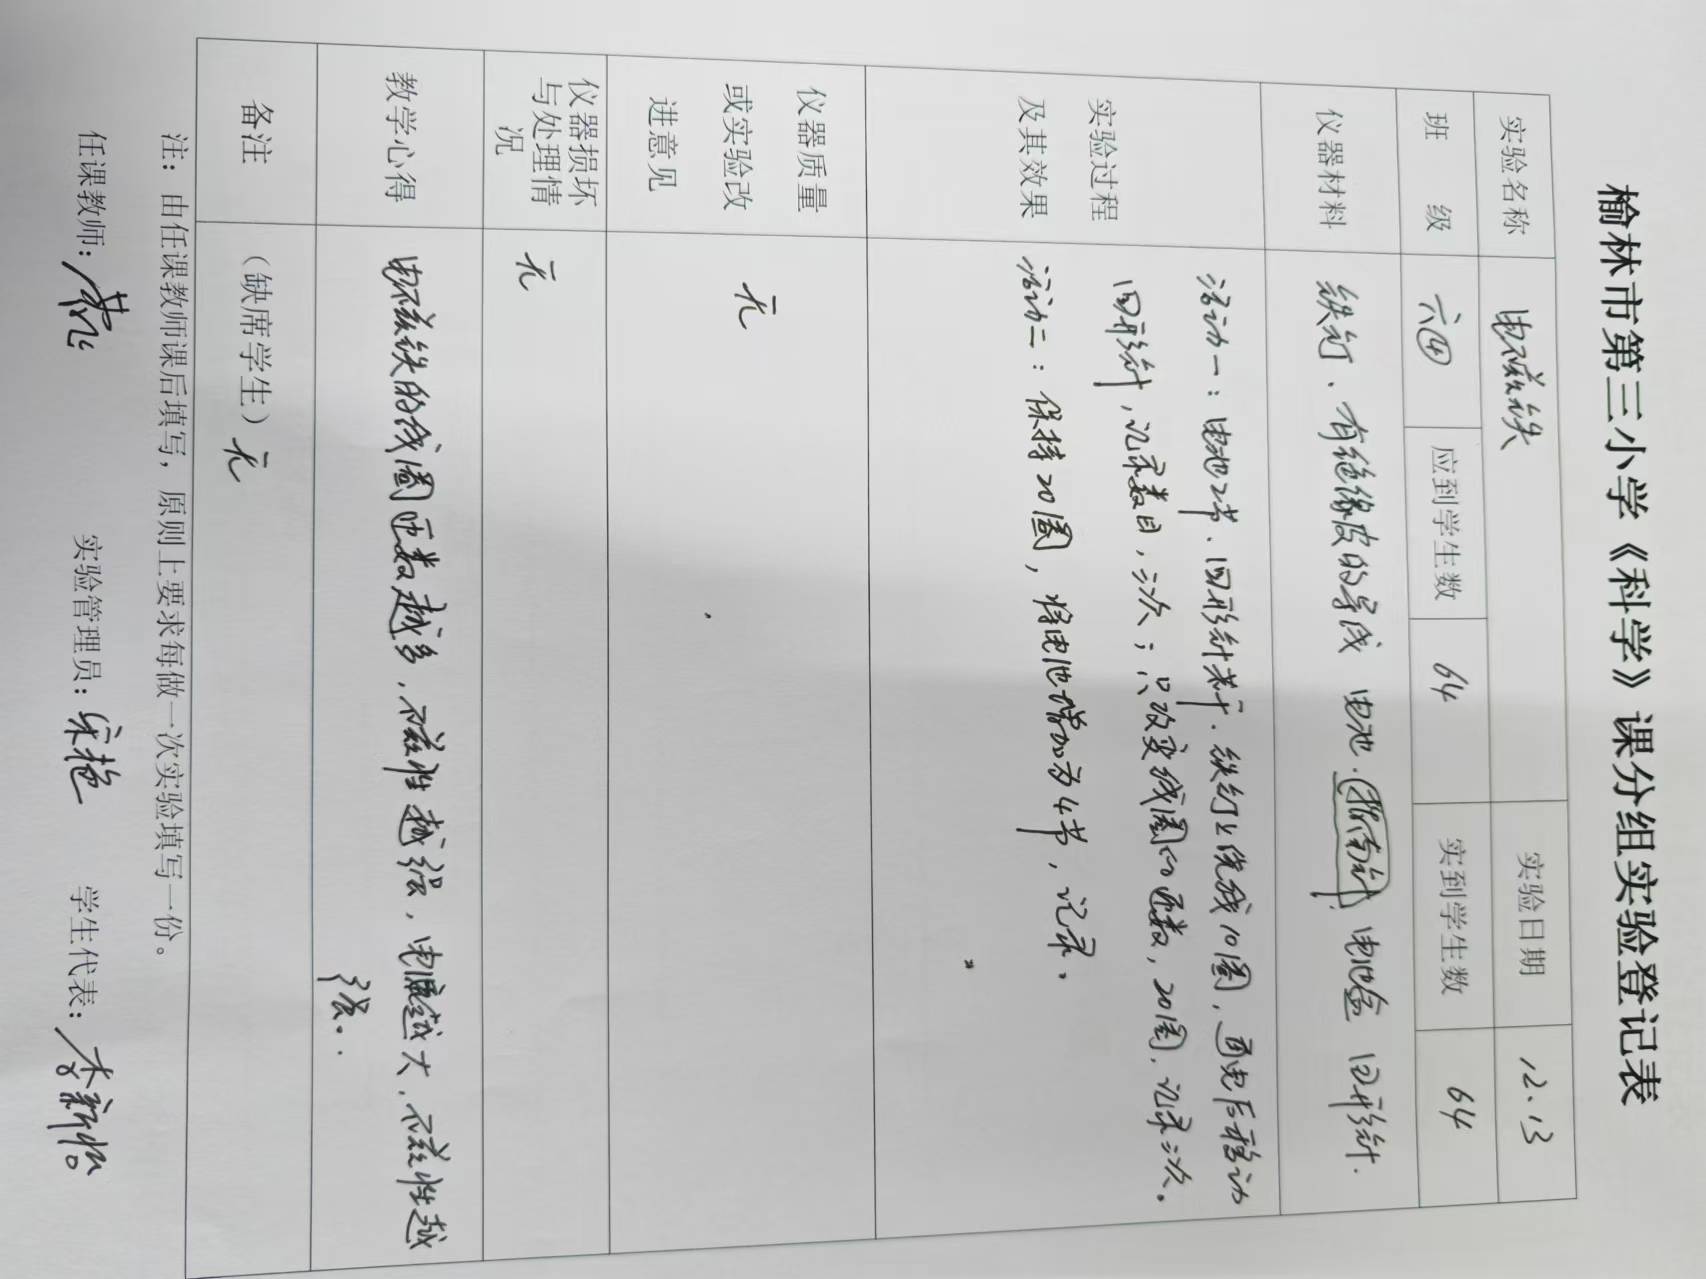 榆林市第三小学《科学》课分组实验登记表
实验名称 电磁铁 实验日期 12.13
班级 六④ 应到学生数 64 实到学生数 64
仪器材料 铁钉、有绝缘皮的导线 电池.指南针 电池盒 回形针.
实验过程及其效果
活动一：电池2节、回形针若干.铁钉上绕线10圈，通电后移动
回形针，记录数目，三次；只改变线圈的匝数，20圈，记录三次。
活动二：保持20圈，将电池增加为4节，记录。
仪器质量或实验改进意见 无
仪器损坏与处理情况 无
教学心得 电磁铁的线圈匝数越多，磁性越强，电流越大，磁性越
强。
备注 （缺席学生）无
注：由任课教师课后填写，原则上要求每做一次实验填写一份。
任课教师： 实验管理员：宋艳 学生代表：李新怡